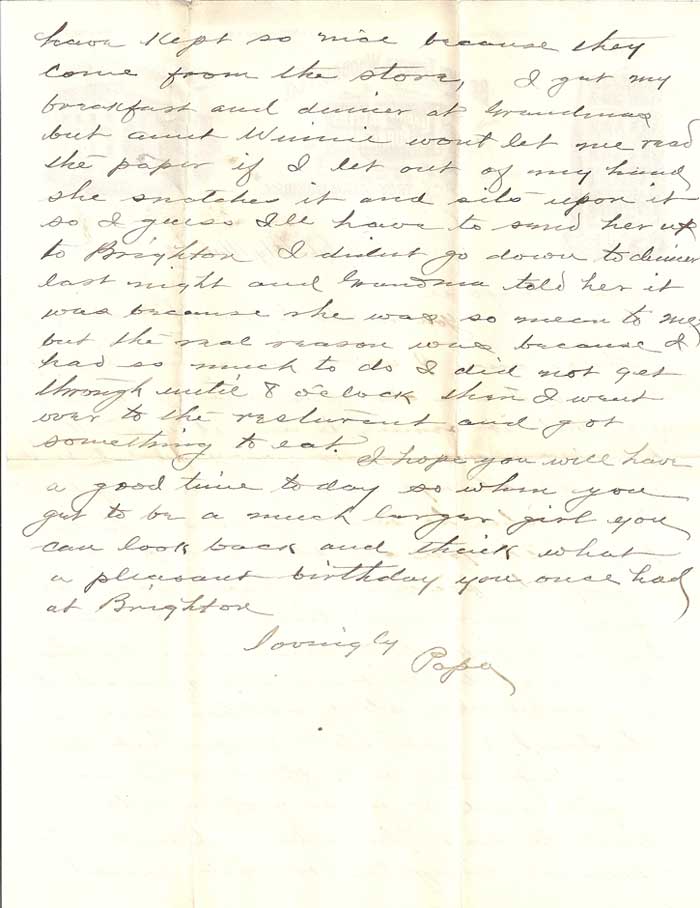 have kept so nice because they
come from the store, I get my
breakfast and dinner at Grandmas
but aunt Winnie wont let me read
the paper if I let out of my hand
she snatches it and sits upon it
so I guess I'll have to send her up
to Brighton I didnt go down to dinner
last night and Grandma told her it
was because she was so mean to me,
but the real reason was because I
had so much to do I did not get
through until 8 o'clock then I went
over to the resturent and got
something to eat. I hope you will have
a good time today so when you
get to be a much larger girl you
can look back and think what
a pleasant birthday you once had
at Brighton
lovingly
Papa